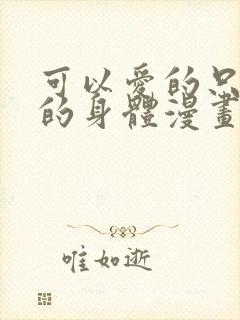 可以愛的只
的身體漫畫
唯如逝